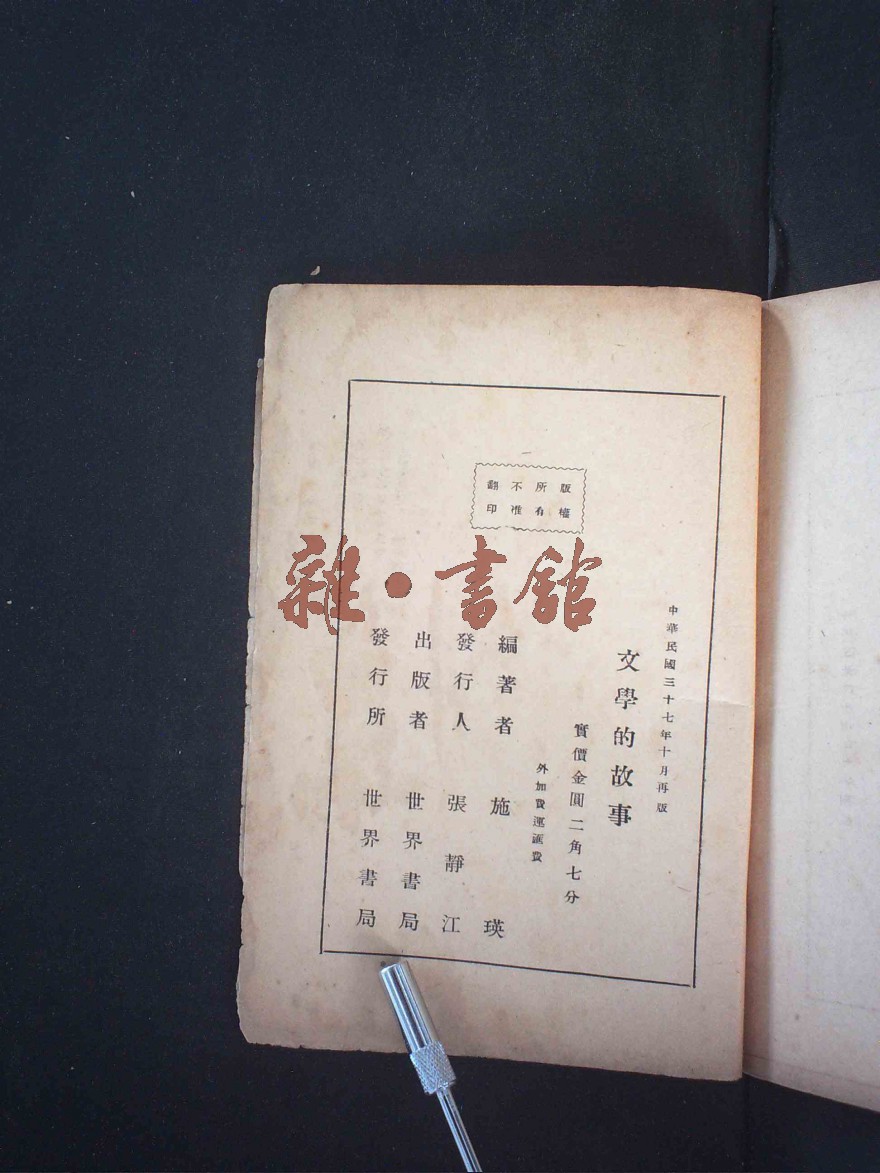 版權
所有
不准
翻印
中華民國三十七年十月再版
文學的故事
實價金圓二角七分
外加費運匯費
編著者 施瑛
發行人 張靜江
出版者 世界書局
發行所 世界書局
雜·書館